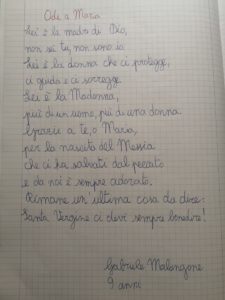 Ode a Maria
Lei è la madre di Dio,
non sei tu, non sono io
Lei è la donna che ci protegge,
ci guida e ci sorregge.
Lei è la Madonna,
più di un uomo, più di una donna.
Grazie a te, o Maria,
per la nascita del Messia
che ci ha salvati dal peccato
e da noi è sempre adorato.
Rimane un'ultima cosa da dire:
Santa Vergine ci devi sempre benedire!
Gabriele Malangone
9 anni